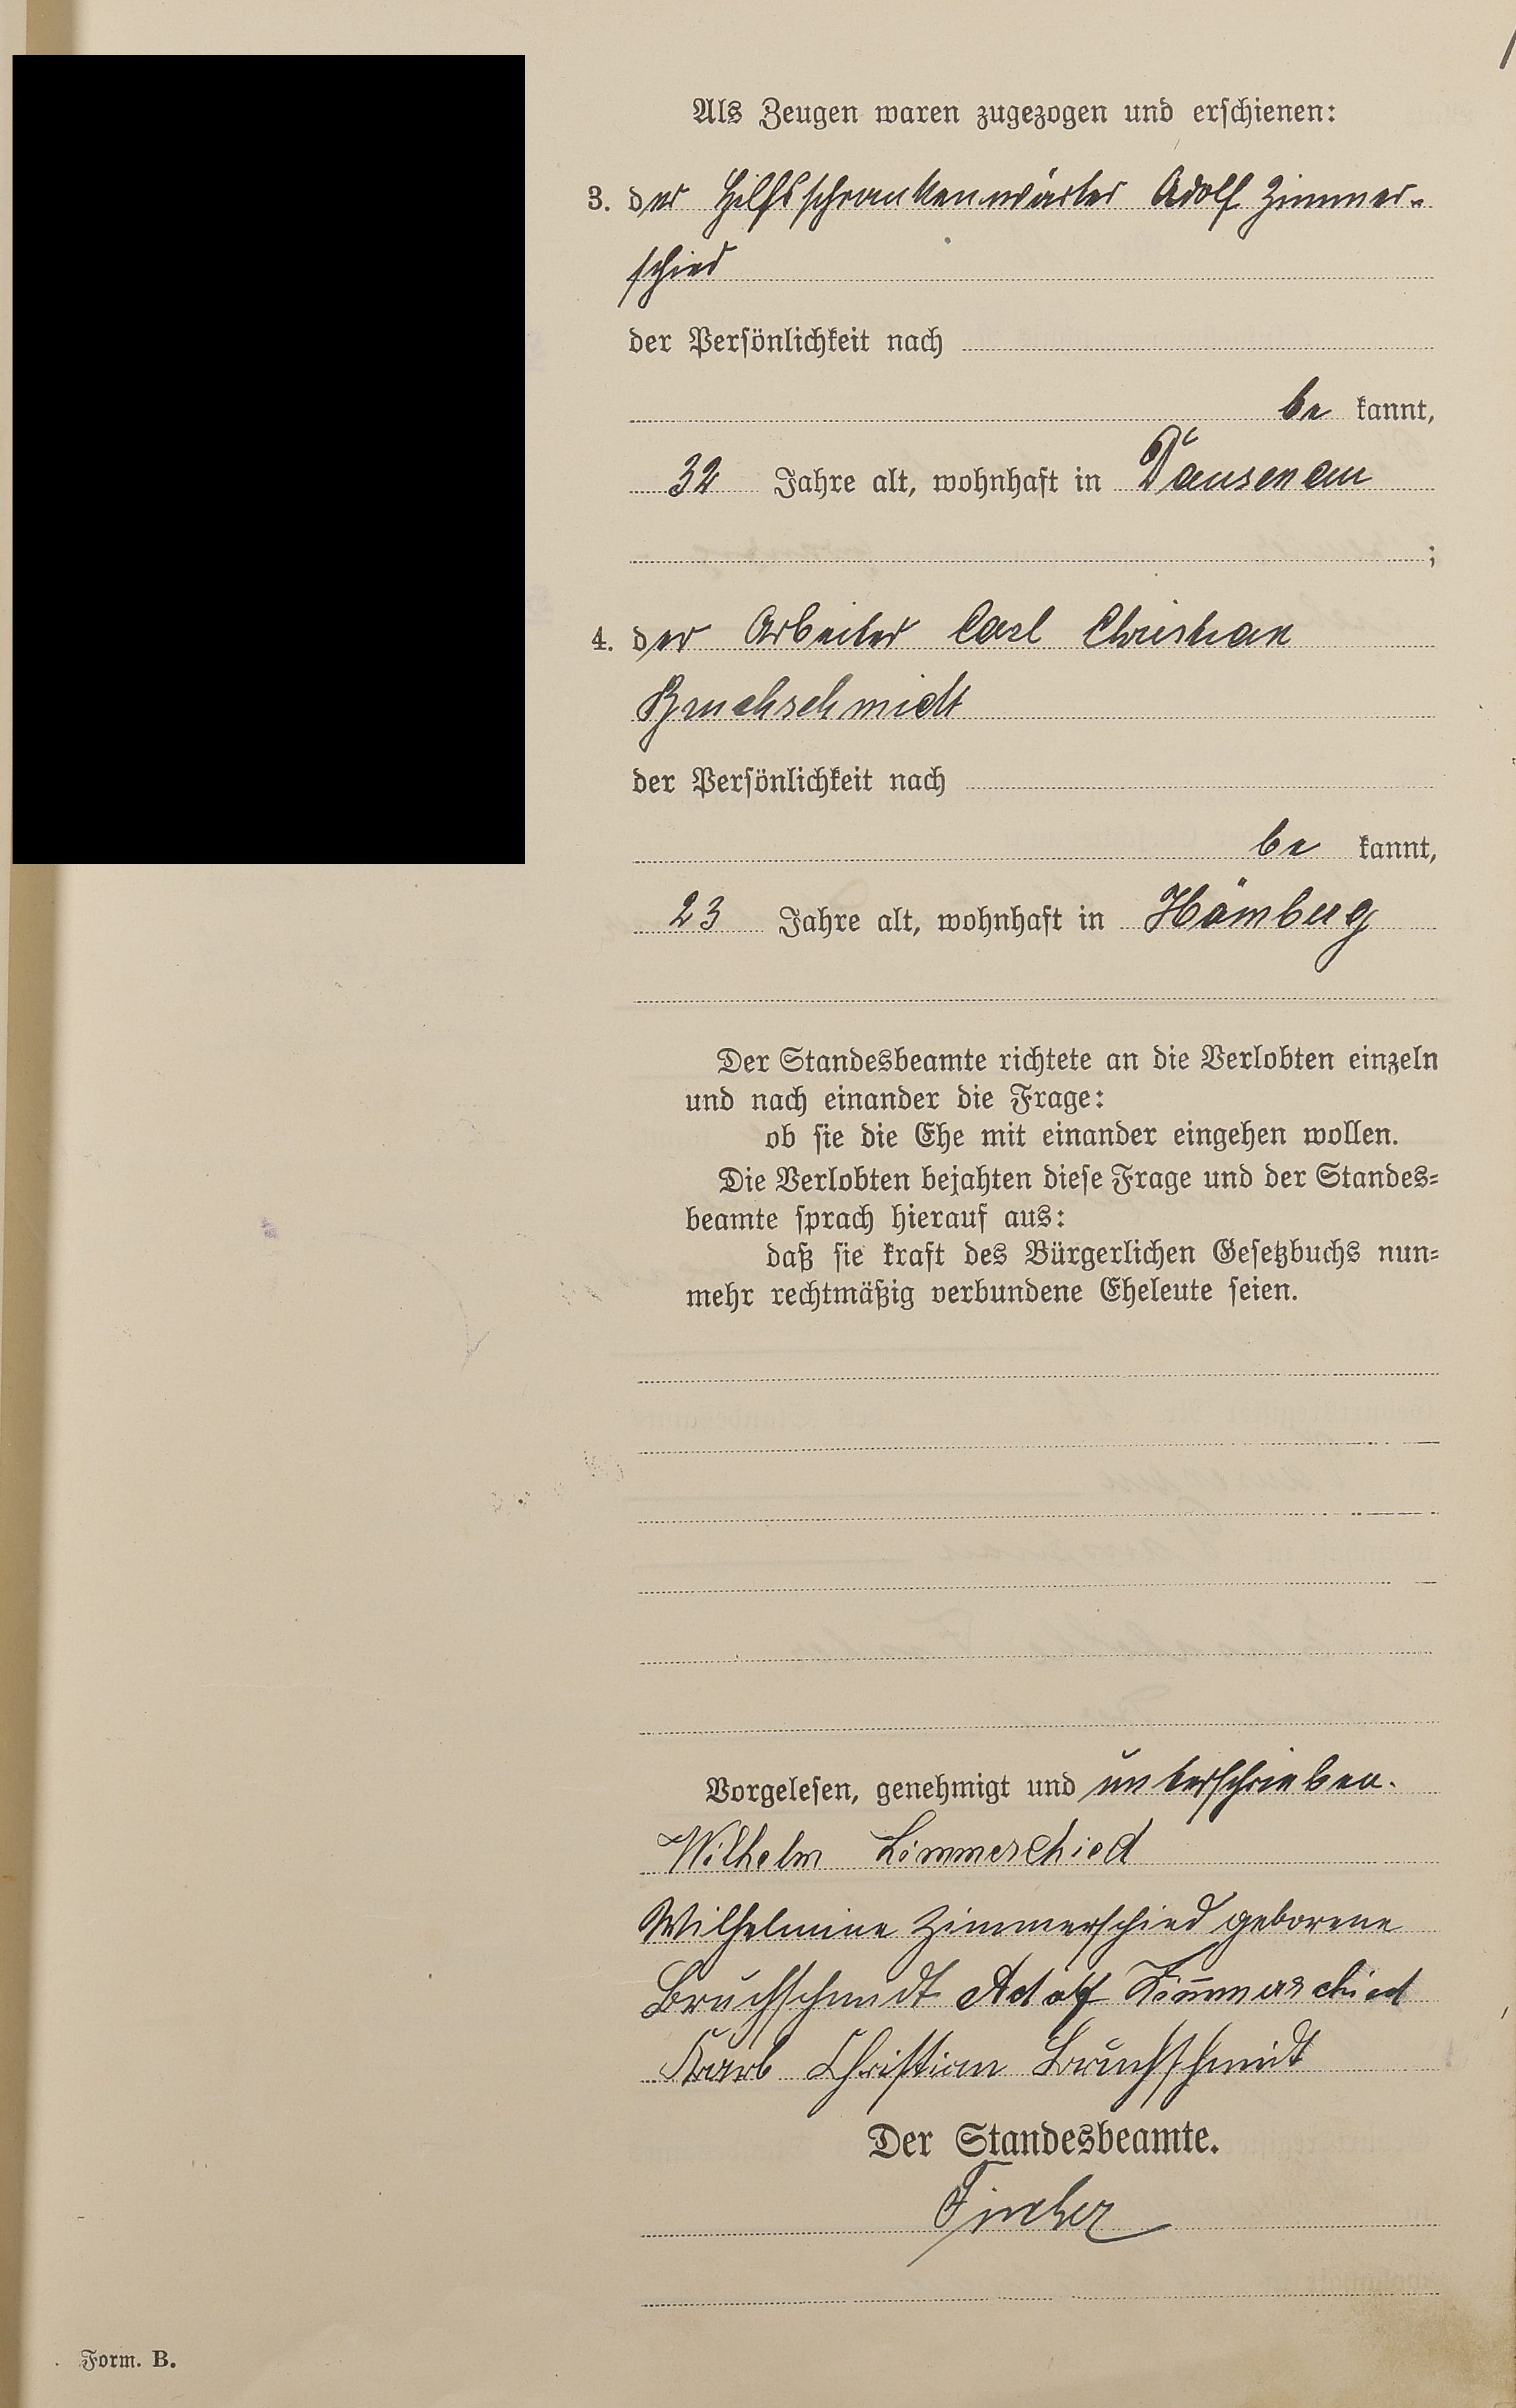 Als Zeugen waren zugezogen und erschienen:
3. der Hilfsschrankenwärter Adolf Zimmer-
schied
der Persönlichkeit nach
be kannt,
32 Jahre alt, wohnhaft in Dausenau
;
4. der Arbeiter Carl Christian
Bruchschmidt
der Persönlichkeit nach
be kannt,
23 Jahre alt, wohnhaft in Hömberg
Der Standesbeamte richtete an die Verlobten einzeln
und nach einander die Frage:
ob sie die Ehe mit einander eingehen wollen.
Die Verlobten bejahten diese Frage und der Standes-
beamte sprach hierauf aus:
daß sie kraft des Bürgerlichen Gesetzbuchs nun-
mehr rechtmäßig verbundene Eheleute seien.
Vorgelesen, genehmigt und unterschrieben.
Wilhelm Zimmerschied
Wilhelmine Zimmerschied geborene
Bruchschmidt Adolf Zimmerschied
Karl Christian Bruchschmidt
Der Standesbeamte.
Form. B.